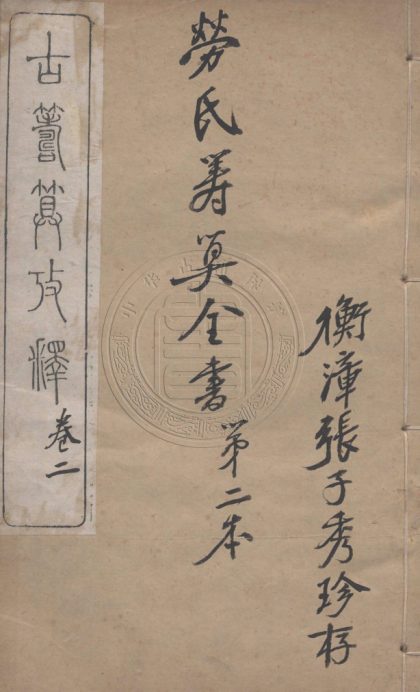 衡漳張子秀珍存
勞氏筹算全書第二本
古籌算攷釋
卷二